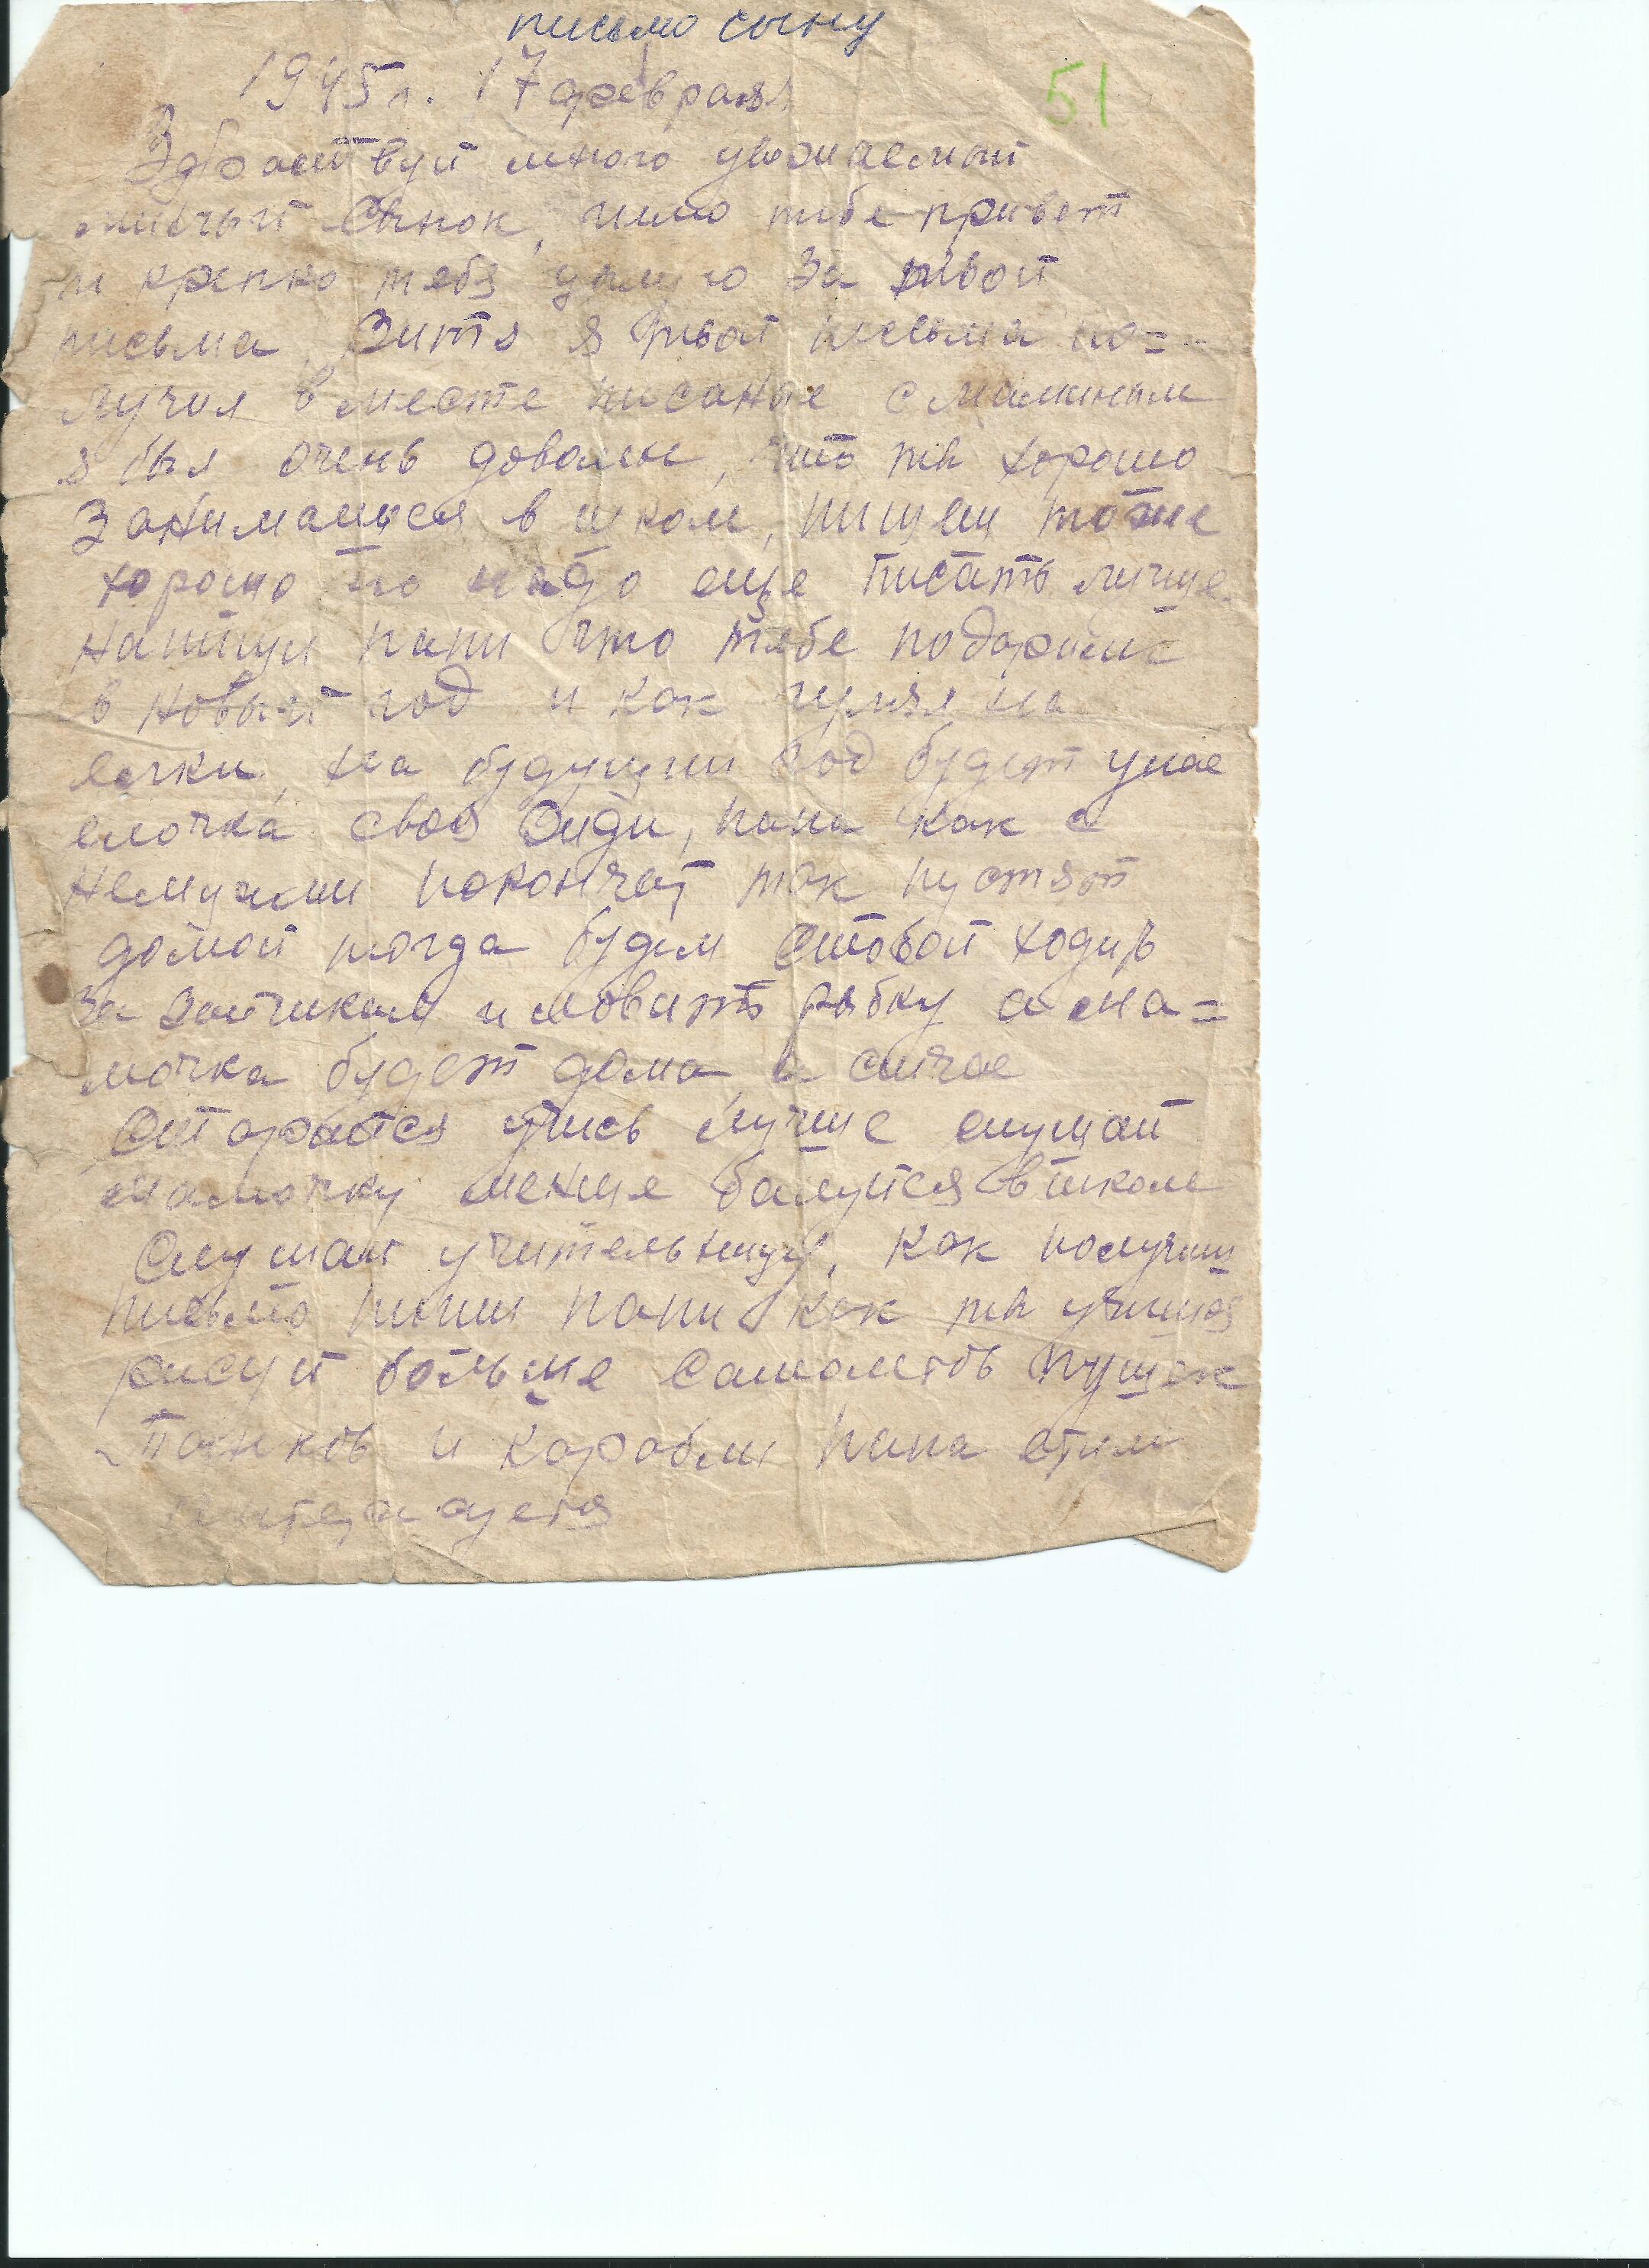 письмо сыну
1945 г. 17 февраля
51
Здраствуй много уважаемый
милый Сынок, шлю тебе привет
и крепко тебя целую за твои
письма, Витя я твои письма по=
лучил вместе писаные с маминым
я был очень доволен, что ты хорошо
Занимаишся в школи, пишеш тоже
хорошо но надо еще писать лучше.
Напиши папи что тебе подарили
в новый год и как гулял на
елки, на будущии год будет уже
елочка своя папа как с
немцами покончат так пустят
домой тогда будем стобой ходить
за зайчиками и ловить рыбку а ма=
мочка будет дома, а сичас
Старайся учись лучше слушай
мамочку менше балуйся в школе
Слушай учительницу, как получиш
письмо пиши папи как ты учишся
рисуй больше самолетов пушек
Танков и корабли папа етим
интерисуется